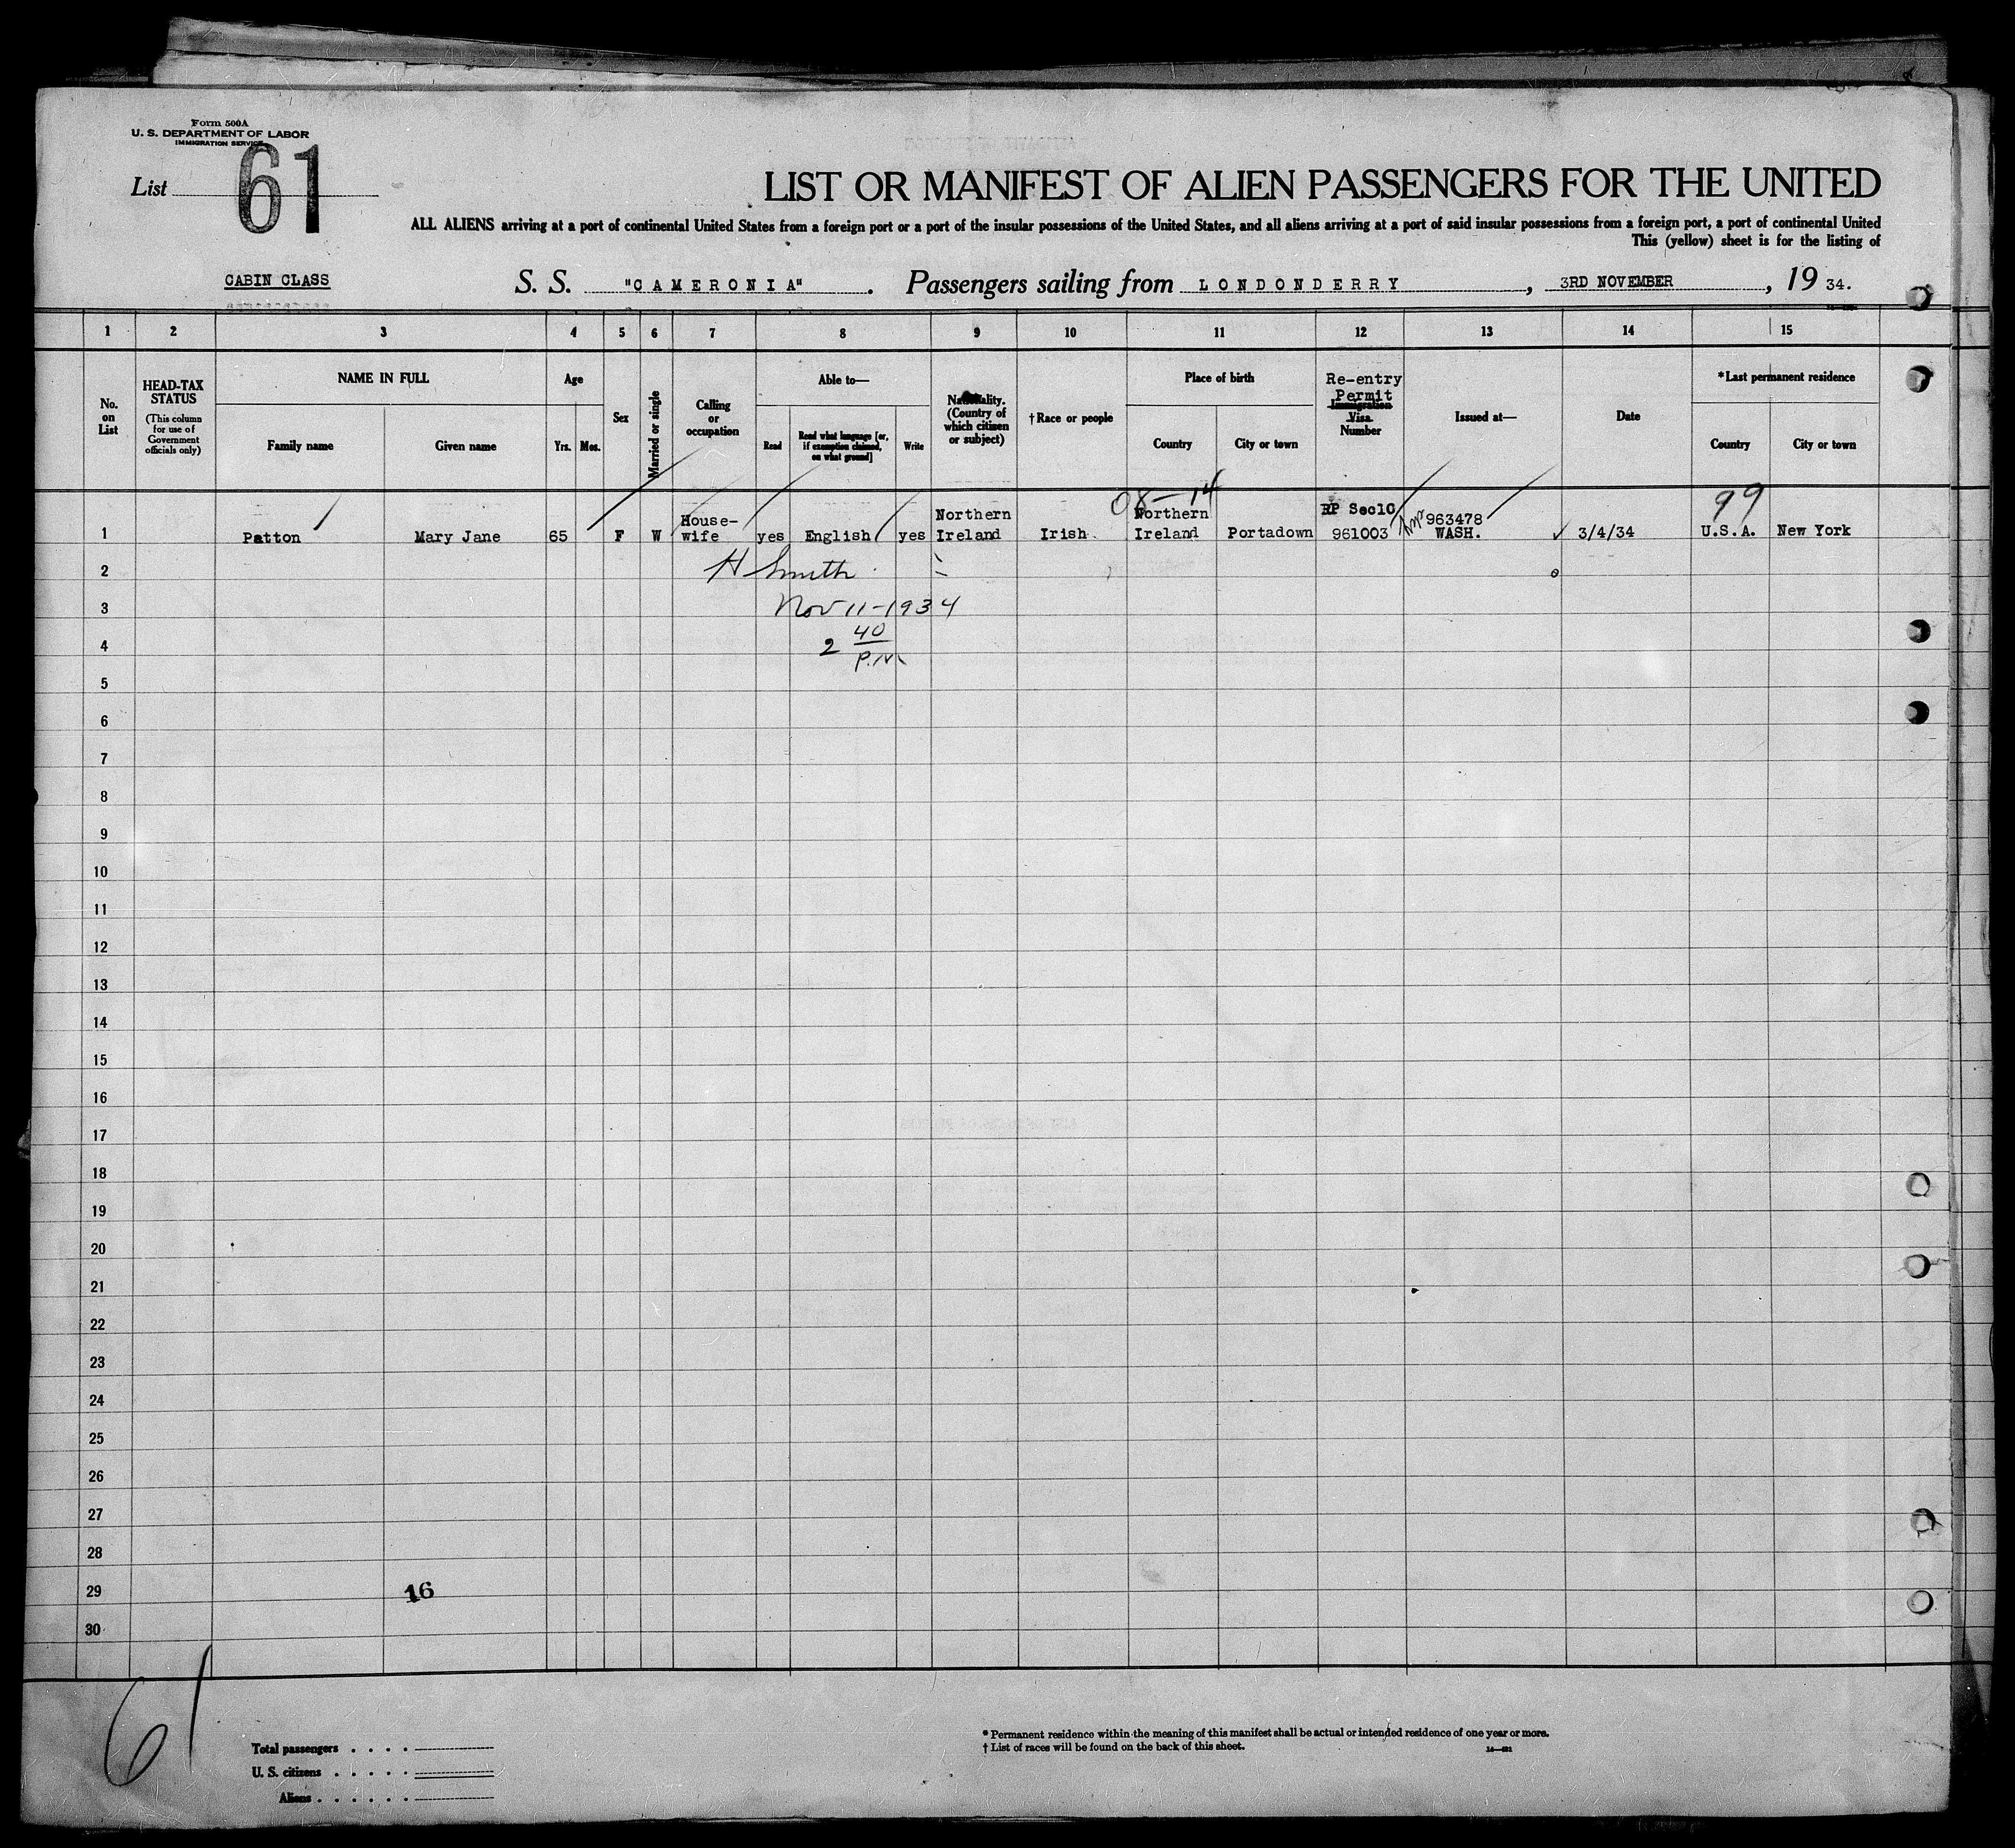 Form 500A
U. S. DEPARTMENT OF LABOR
IMMIGRATION SERVICE
List 61
LIST OR MANIFEST OF ALIEN PASSENGERS FOR THE UNITED
ALL ALIENS arriving at a port of continental United States from a foreign port or a port of the insular possessions of the United States, and all aliens arriving at a port of said insular possessions from a foreign port, a port of continental United
This (yellow) sheet is for the listing of
CABIN CLASS S. S. "CAMERONIA". Passengers sailing from LONDONDERRY, 3RD NOVEMBER, 19 34.
1 2 3 4 5 6 7 8 9 10 11 12 13 14 15
No. on List
HEAD-TAX STATUS
(This column for use of Government officials only)
NAME IN FULL
Family name Given name
Age
Yrs. Mos.
Sex
Married or single
Calling or occupation
Able to—
Read Read what language [or, if exemption claimed, on what ground] Write
Nationality. (Country of which citizen or subject)
†Race or people
Place of birth
Country City or town
Re-entry Permit
Immigration Visa Number
Issued at—
Date
*Last permanent residence
Country City or town
08-14
99
1 Patton Mary Jane 65 F W House-wife yes English yes Northern Ireland Irish Northern Ireland Portadown RP Sec1C 961003 963478 WASH. 3/4/34 U.S.A. New York
2 H Smith
3 Nov 11-1934
4 2 40 P.M.
5
6
7
8
9
10
11
12
13
14
15
16
17
18
19
20
21
22
23
24
25
26
27
28
29 16
30
61
Total passengers . . . .
U. S. citizens . . . . .
Aliens . . . . . .
* Permanent residence within the meaning of this manifest shall be actual or intended residence of one year or more.
† List of races will be found on the back of this sheet.